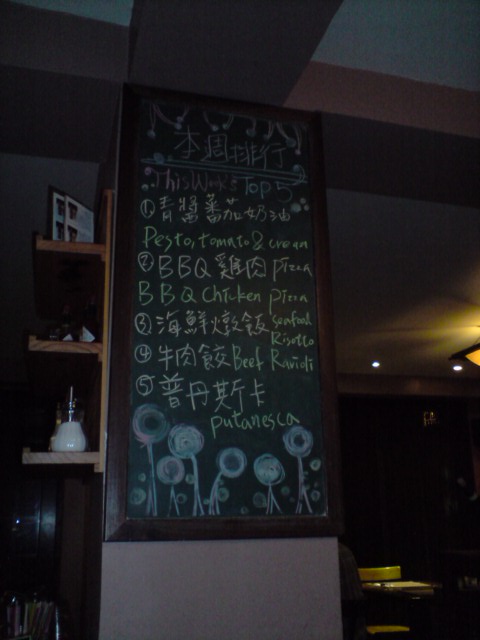 本週排行
This Week's Top 5
① 青醬蕃茄奶油
Pesto, tomato & cream
② BBQ 雞肉 pizza
BBQ Chicken pizza
③ 海鮮燉飯 seafood
Risotto
④ 牛肉餃 Beef Ravioli
⑤ 普丹斯卡
putanesca